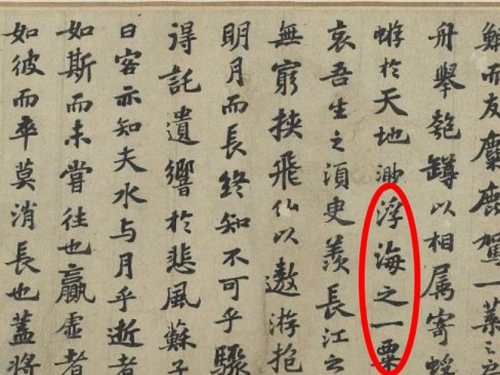 鰕而友麋鹿駕一葉之
舟舉匏罇以相属寄蜉
蝣於天地渺浮海之一粟
哀吾生之湏臾羨長江之
無窮挾飛仙以遨游抱
明月而長終知不可乎驟
得託遺響於悲風蘇子
曰客亦知夫水与月乎逝者
如斯而未嘗往也贏虛者
如彼而卒莫消長也蓋將